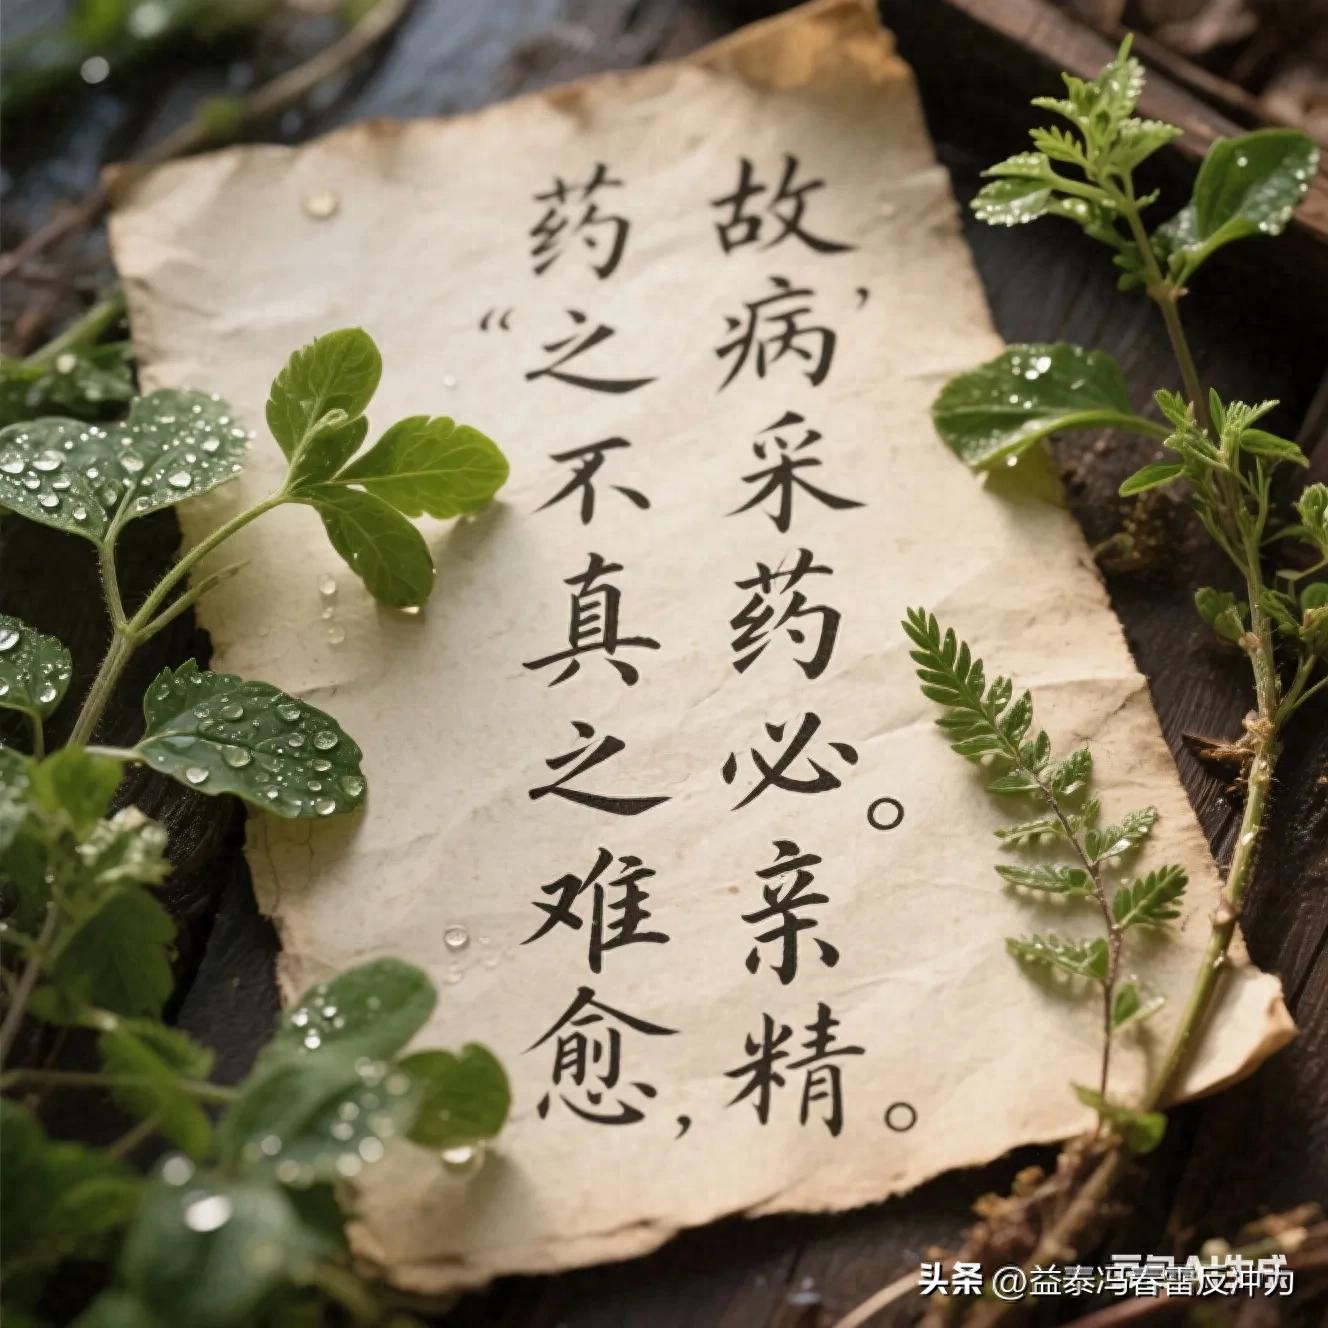 药“之不真之难愈，
故’病采药必。亲精。
头条 @益泰冯春雷反冲力